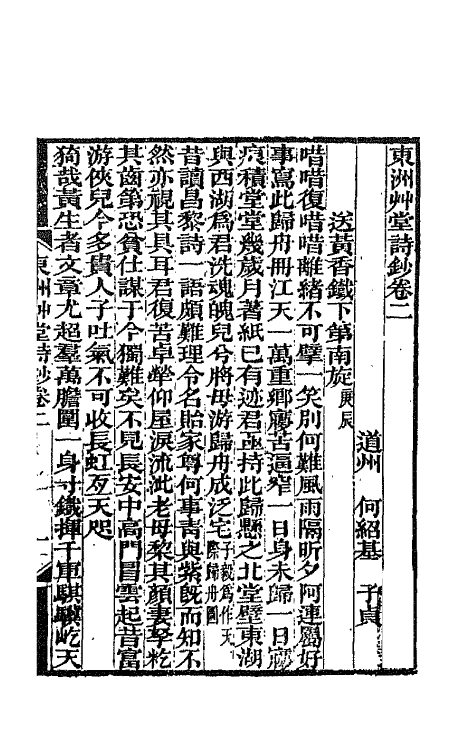 東洲艸堂詩鈔卷二
道州 何紹基 子貞
送黃香鐵下第南旋庚辰
唶唶復唶唶離緒不可擘一笑別何難風雨隔昕夕阿連屬好
事寫此歸舟冊江天一萬重鄉夢苦逼窄一日身未歸一日夢
痕積堂堂幾歲月著紙已有迹君亟持此歸懸之北堂壁東湖
與西湖爲君洗魂魄兒兮將母游歸舟成泛宅子毅爲作天際歸舟圖
昔讀昌黎詩一語頗難理令名貽家尊何事靑與紫旣而知不
然亦視其具耳君復苦卓犖仰屋淚流泚老母黎其顏妻孥粃
其齒第恐貧仕謀于今獨難矣不見長安中高門冒雲起昔富
游俠兒今多貴人子吐氣不可收長虹亙天咫
猗哉黃生者文章尤超羣萬膽圍一身寸鐵揮千軍騏驥屹天
東洲艸堂詩鈔卷二
一